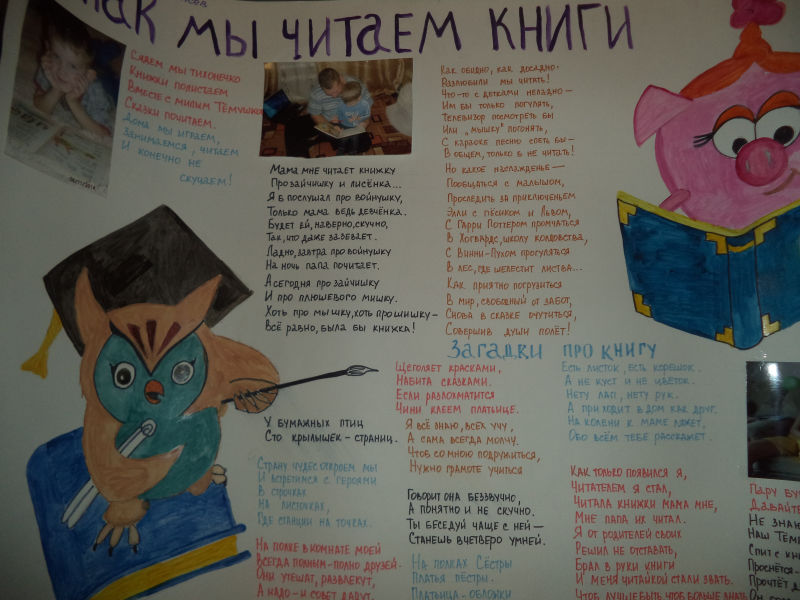 КАК МЫ ЧИТАЕМ КНИГИ
Сядем мы тихонечко
Книжки полистаем
Вместе с милым Тёмушкой
Сказки почитаем.
Дома мы играем,
Занимаемся, читаем
И конечно не
скучаем!
Мама мне читает книжку
Про зайчишку и лисёнка...
Я б послушал про войнушку,
Только мама ведь девчёнка.
Будет ей, наверно, скучно,
Так, что даже зазевает.
Ладно, завтра про войнушку
На ночь папа почитает.
А сегодня про зайчишку
И про плюшевого мишку.
Хоть про мышку, хоть про мишку –
Всё равно, была бы книжка!
Как обидно, как досадно.
Разлюбили мы читать!
Что-то с детками неладно –
Им бы только погулять,
Телевизор посмотреть бы
Или „мышку" погонять,
С караоке песню спеть бы –
В общем, только б не читать!
Но какое наслажденье –
Пообщаться с малышом,
Проследить за приключеньем
Элли с пёсиком и Львом,
С Гарри Поттером промчаться
В Хогвардс, школу колдовства,
С Винни-Пухом прогуляться
В лес, где шелестит листва...
Как приятно погрузиться
В мир, свободный от забот,
Снова в сказке очутиться,
Совершив души полёт!
ЗАГАДКИ ПРО КНИГУ
Щеголяет красками,
Набита сказками.
Если разлохматится
Чини клеем платьице.
Есть листок, есть корешок.
А не куст и не цветок.
Нету лап, нету рук.
А приходит в дом как друг.
На колени к маме ляжет,
Обо всём тебе расскажет.
У бумажных птиц
Сто крылышек – страниц.
Я всё знаю, всех учу,
А сама всегда молчу.
Чтоб со мною подружиться,
Нужно грамоте учиться
Страну чудес откроем мы
И встретимся с героями
В строчках
На листочках,
Где станции на точках.
Говорит она беззвучно,
А понятно и не скучно.
Ты беседуй чаще с ней –
Станешь вчетверо умней.
Как только появился я,
Читателем я стал,
Читала книжки мама мне,
Мне папа их читал.
Я от родителей своих
Решил не отставать,
Брал в руки книги
И меня читайкой стали звать.
Чтоб лучше быть, чтоб больше знать
На полке в комнате моей
Всегда полным-полно друзей.
Они утешат, развлекут,
А надо – и совет дадут.
На полках Сёстры
Платья пёстры.
Платьица – обложки
Пару
Давайте
Не зна
Наш Тём
Спит с кни
Проснётся –
Прочтёт